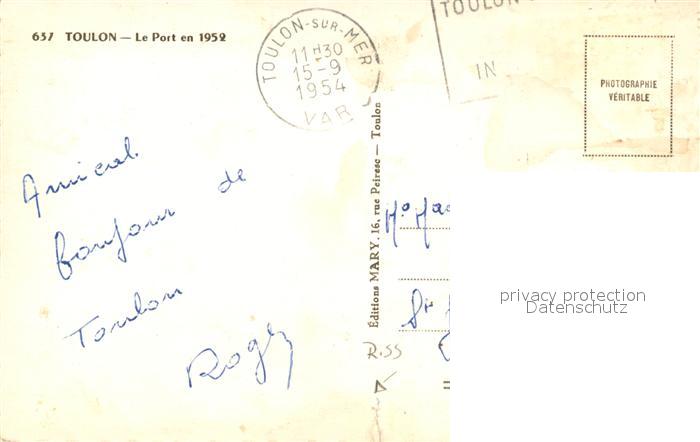 637 TOULON — Le Port en 1952
TOULON-SUR-MER
11H30
15-9
1954
VAR
TOULON
IN
PHOTOGRAPHIE
VÉRITABLE
Amical
bonjour de
Toulon
Roger
Éditions MARY, 16, rue Peiresc — Toulon
privacy protection
Datenschutz
R.55